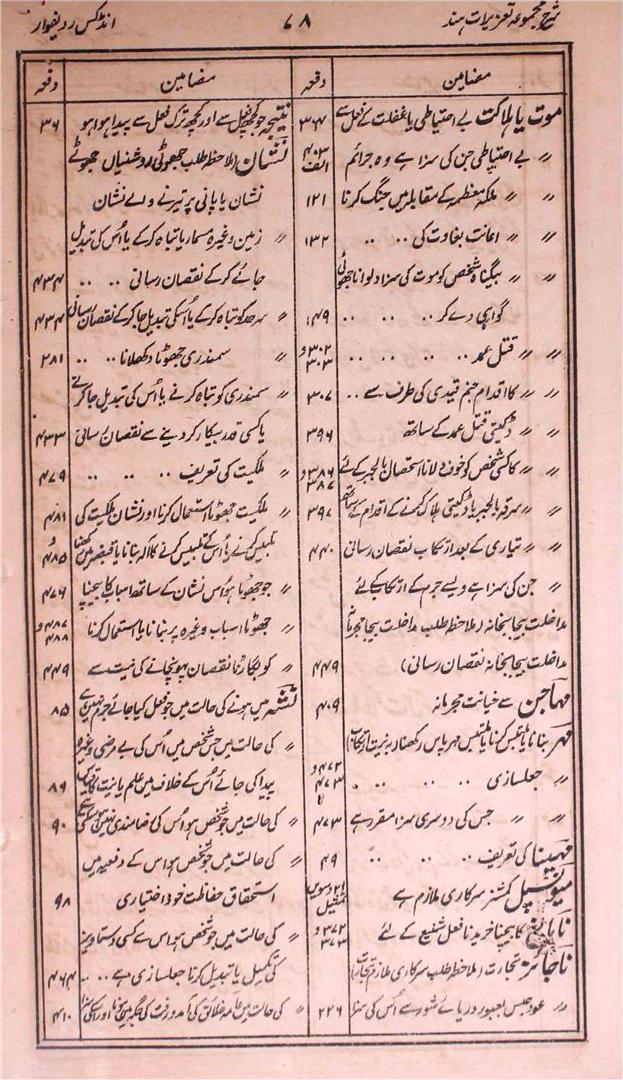 شرح مجموعہ تعزیرات ہند
۷۸
انڈکس ردیفوار
مضامین
دفعہ
موت یا ہلاکت بے احتیاطی یا غفلت کے فعل سے ۳۰۴ الف
〃 بے احتیاطی جن کی سزا ہے وہ جرائم ۴۰۳
〃 〃 ملکہ معظمہ کے مقابلہ میں جنگ کرنا ۱۲۱
〃 〃 اعانت بغاوت کی .. .. ۱۳۲
〃 〃 بیگناہ شخص کو موت کی سزا دلوانا جھوٹی
گواہی دے کر .. .. .. ۱۴۹
〃 〃 قتل عمد .. .. .. .. ۳۰۲ و ۳۰۳
〃 〃 کا اقدام جنم قیدی کی طرف سے .. ۳۰۷
〃 〃 ڈکیتی قتل عمد کے ساتھ ۳۹۶
〃 〃 کا کسی شخص کو خوف دلانا استحصال بالجبر کے لئے ۳۸۶ و ۳۸۷
〃 〃 سرقہ بالجبر یا ڈکیتی ہلاک کرنے کے اقدام کے ساتھ ۳۹۷
〃 〃 تیاری کے بعد ارتکاب نقصان رسانی ۴۴۰
〃 〃 جن کی سزا ہے ویسے جرم کے ارتکاب کے لئے
مداخلت بیجا بخانہ (ملاحظہ طلب مداخلت بیجا مجرمانہ
مداخلت بیجا بخانہ نقصان رسانی) ۴۴۹
مہاجن سے خیانت مجرمانہ ۴۰۹
مہر بنانا یا تلبیس کرنا یا ملتبس مہر پاس رکھنا بہ نیت ارتکاب
〃 جعلسازی .. .. .. ۴۷۲ و ۴۷۳
〃 〃 جس کی دوسری سزا مقرر ہے ۴۷۳
مہینا کی تعریف .. .. .. ۴۹
میونسپل کمشنر سرکاری ملازم ہے ۲۱ دسویں تمثیل
نابالغ کا بیچنا خریدنا فعل شنیع کے لئے ۳۷۲ و ۳۷۳
ناجائز تجارت (ملاحظہ طلب سرکاری ملازم تجارت)
〃 عود حبس بعبور دریائے شور سے اُس کی سزا ۲۲۶
مضامین
دفعہ
نتیجہ جو کچھ فعل سے اور کچھ ترک فعل سے پیدا ہوا ہو ۳۶
نشان (ملاحظہ طلب جھوٹی روشنیاں جھوٹے
نشان یا پانی پر تیرنے والے نشان
〃 زمین وغیرہ مسمار یا تباہ کرکے یا اُس کی تبدیل
جائے کرکے نقصان رسانی .. .. ۴۳۴
〃 سرحد کو تباہ کرکے یا اُسکی تبدیل جا کرکے نقصان رسانی ۴۳۴
〃 سمندری جھوٹا دکھلانا .. .. ۲۸۱
〃 سمندری کو تباہ کرنے یا اُس کی تبدیل جا کرنے
یا کسی قدر بیکار کر دینے سے نقصان رسانی ۴۳۳
〃 ملکیت کی تعریف .. .. .. ۴۷۹
〃 ملکیت جھوٹا استعمال کرنا اور نشان ملکیت کی ۴۸۱
تلبیس کرنے یا اُس کے تلبیس کرنے کا آلہ بنانا یا قبضہ میں رکھنا ۴۸۵
〃 جو جھوٹا ہو اُس نشان کے ساتھ اسباب کا بیچنا ۴۷۶
〃 جھوٹا اسباب وغیرہ پر بنانا یا استعمال کرنا ۴۸۷ و ۴۸۸
〃 کو بگاڑنا نقصان پہونچانے کی نیت سے ۴۴۹
نشہ میں ہونے کی حالت میں جو فعل کیا جائے جرم نہیں ہے ۸۵
〃 کی حالت میں جس شخص میں اُس کی بے مرضی وغیرہ
پیدا کی جائے اُس کے خلاف میں علم یا نیت کا ۸۶
〃 کی حالت میں جو شخص ہو اُس کی رضامندی نہیں ہو سکتی ہے ۹۰
〃 کی حالت میں جو شخص ہو اس کے دفعیہ میں
استحقاق حفاظت خود اختیاری ۹۸
〃 کی حالت میں جو شخص ہو اس سے کسی دستاویز
کی تکمیل یا تبدیل کرنا جعلسازی ہے .. .. ۴۶۴
〃 کی حالت میں عامہ خلائق کی آمدورفت کی جگہ میں اور اسکی سزا ۵۱۰